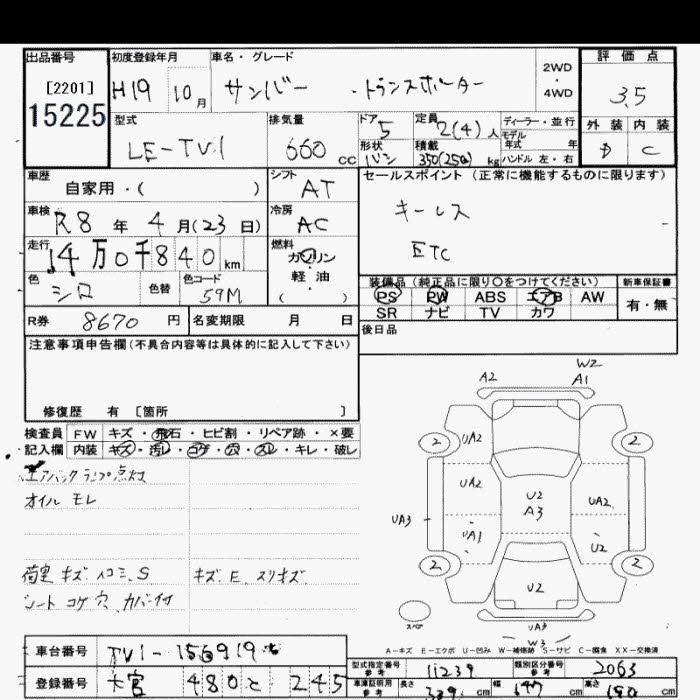 出品番号 初度登録年月 車名・グレード 評価点
[2201] H19 10月 サンバー ・トランスポーター 2WD・4WD 3.5
15225
型式 排気量 ドア 定員 ディーラー・並行 外装 内装
LE-TV1 660cc 5 2(4)人 モデル年式 年 D C
形状 積載 ハンドル 左・右
バン 350(250)kg
車歴 シフト セールスポイント(正常に機能するものに限ります)
自家用・( ) AT
キーレス
車検 冷房
R8年4月(23日) AC
ETC
走行 燃料
14万0千840km ガソリン・軽油( )
色 色替 色コード 装備品(純正品に限り○をつけてください) 新車保証書
シロ 59M PS PW ABS エアB AW 有・無
SR ナビ TV カワ
R券 8670円 名変期限 月 日
後日品
注意事項申告欄(不具合内容等は具体的に記入して下さい)
修復歴 有 [箇所 ]
検査員 FW キズ・飛石・ヒビ割・リペア跡・×要
記入欄 内装 キズ・汚レ・コゲ・穴・スレ・キレ・破レ
エアバックランプ点灯
オイルモレ
荷室 キズ ヘコミ、S キズ、E、スリキズ
シート コゲ穴 カバー付
A2 W2 A1
2 UA2 2
UA2 U2 A3 UA2
UA3 UA1 U2
2 U2 2
スペア UA3
W3
A-キズ E-エクボ U-凹み W-補修跡 S-サビ C-腐食 XX-交換済
車台番号 TV1-
型式指定番号 参考 11239 類別区分番号 参考 2063
登録番号 大宮 480 と 245
車庫証明用 参考 長さ 339cm 幅 147cm 高さ 190cm